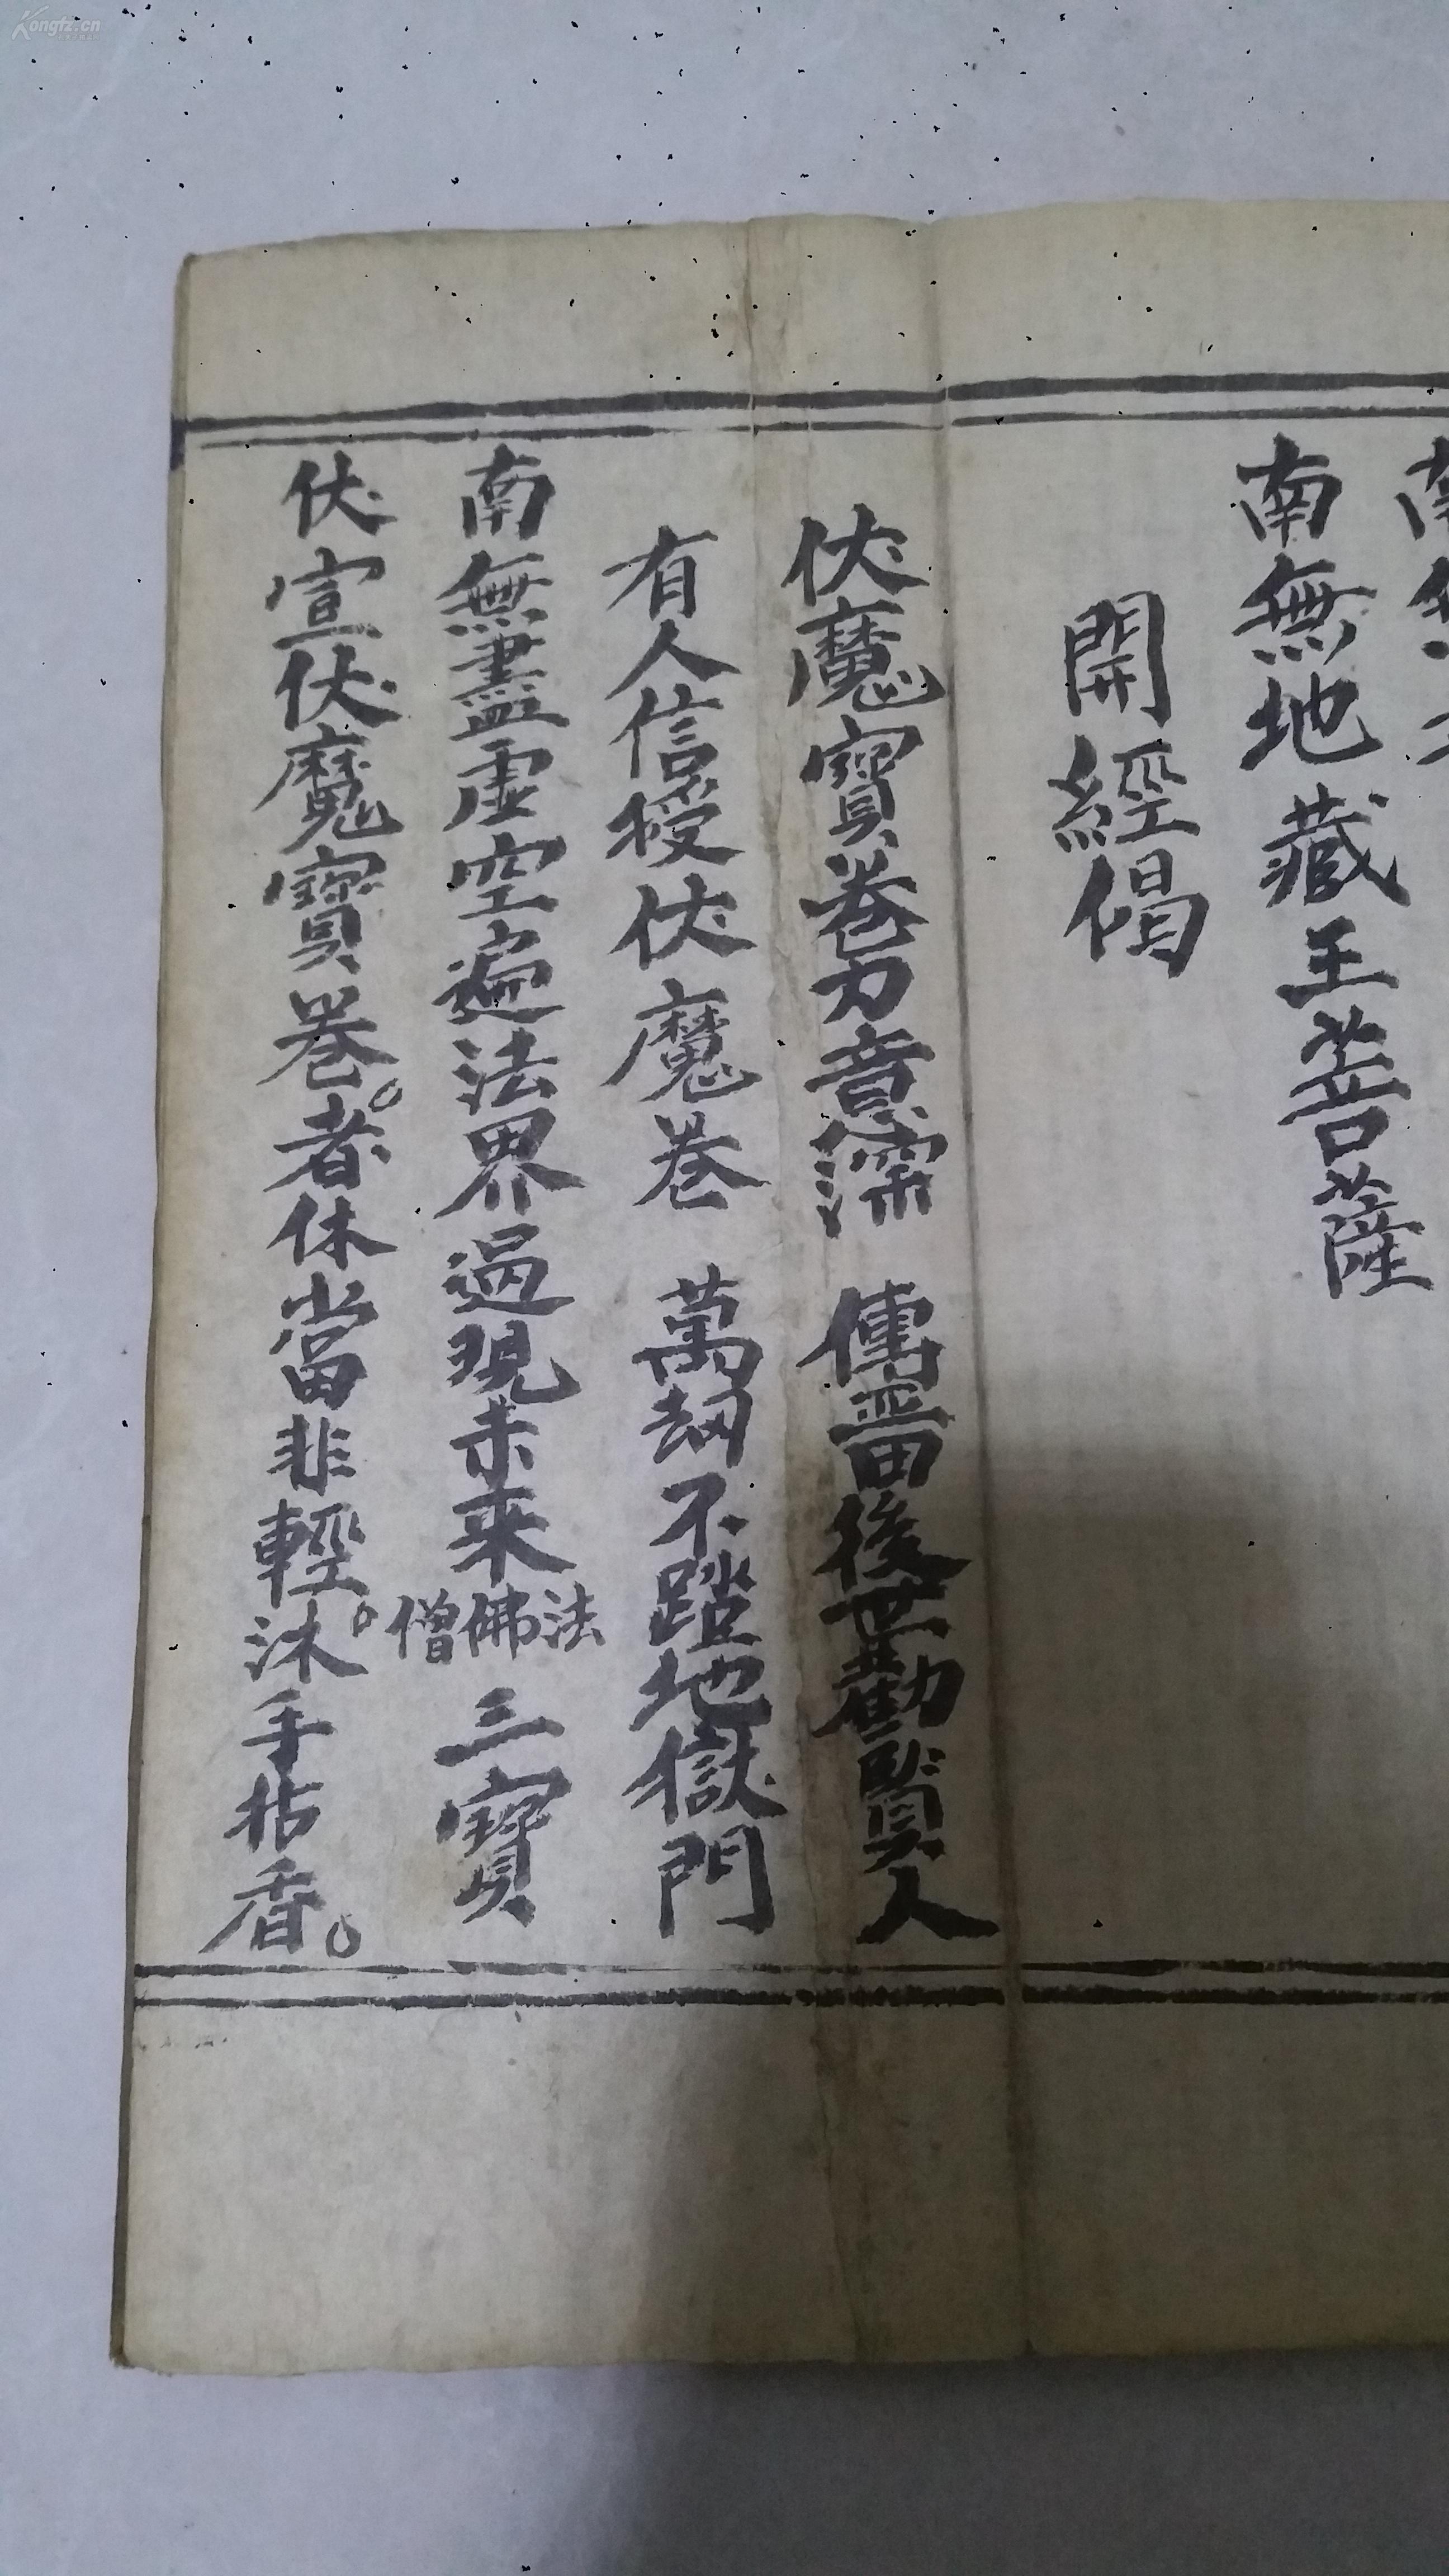 南無
南無地藏王菩薩
開經偈
伏魔寶卷力意深 傳留後世勸賢人
有人信授伏魔卷 萬劫不踏地獄門
南無盡虛空遍法界過現未來法佛僧三寶
伏宣伏魔寶卷。者休當非輕。沐手拈香。
Kongfz.cn